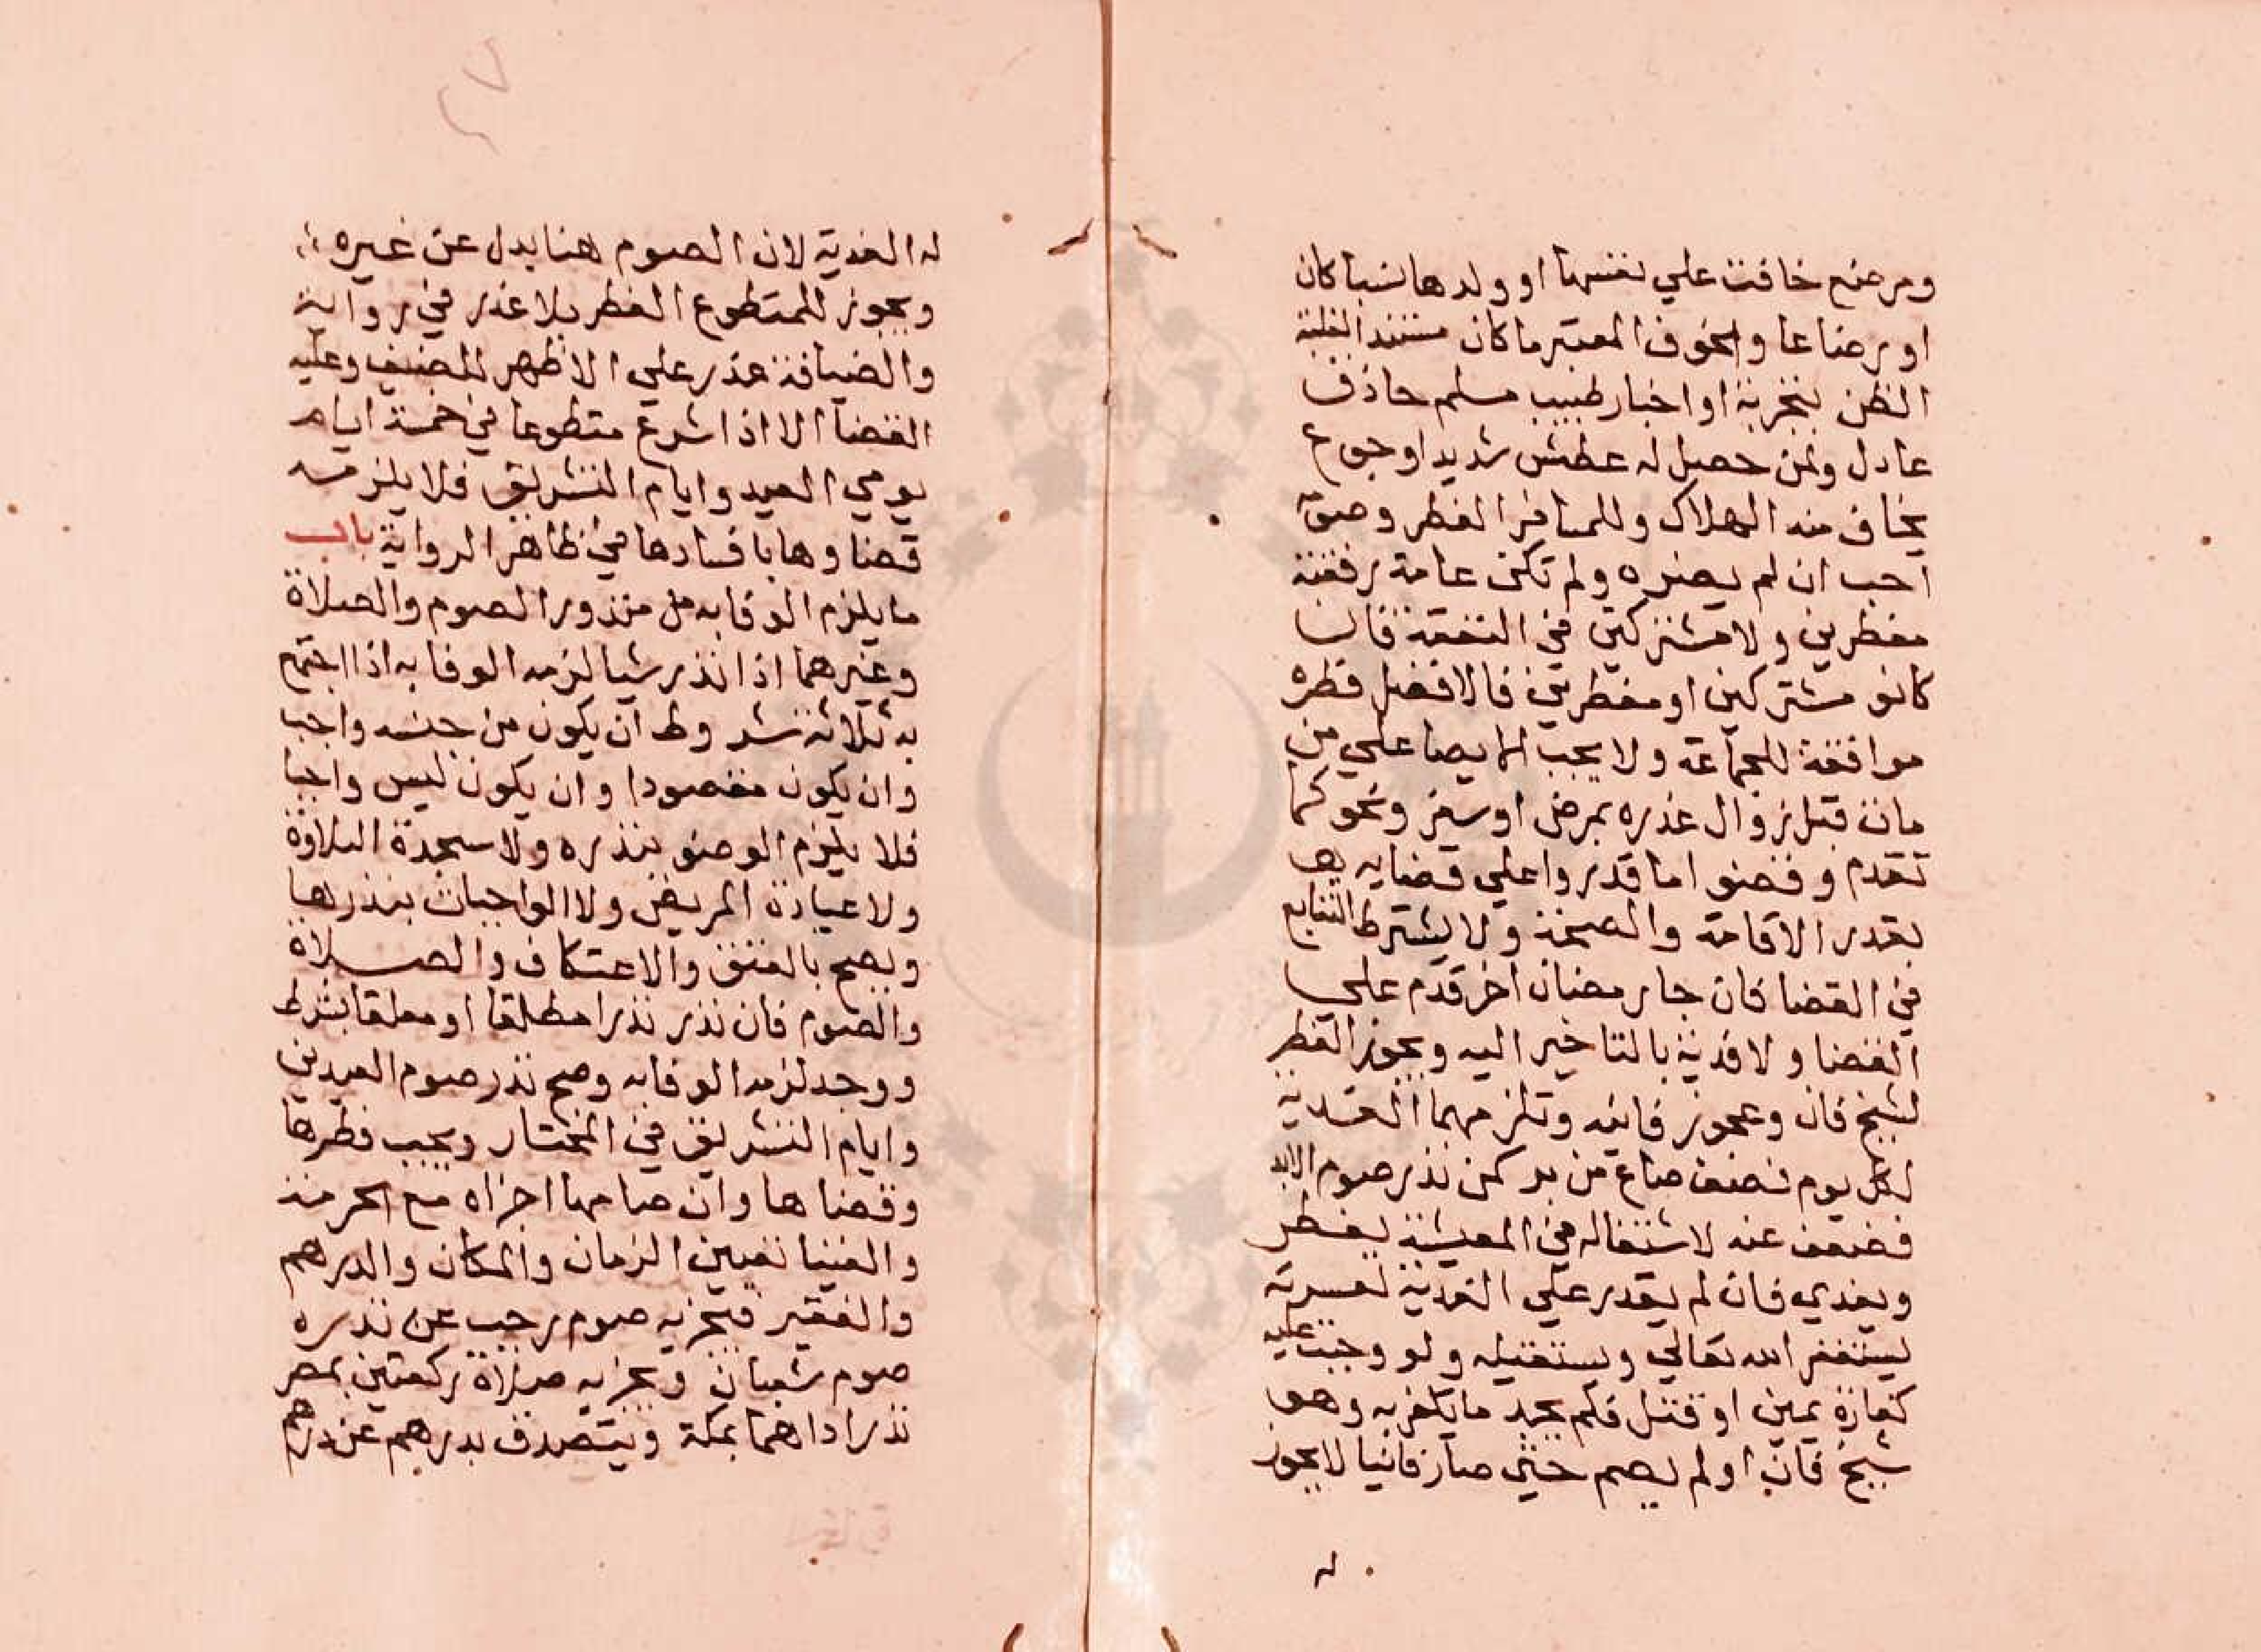 ومرضع خافت علي نفسها او ولدها نسبا كان
او رضاعا والخوف المعتبر ما كان مستندا لغلبة
الظن بتجربة او اخبار طبيب مسلم حاذق
عادل ولمن حصل له عطش شديد او جوع
يخاف منه الهلاك وللمسافر الفطر وصومه
احب ان لم يضره ولم تكن عامة رفقته
مفطرين ولا مشتركين في النفقة فان
كانو مشتركين او مفطرين فالافضل فطره
موافقة للجماعة ولا يجب الايصا علي من
مات قبل زوال عذره بمرض او سفر ونحو كما
تقدم وقضو اما قدروا علي قضايه
بقدر الاقامة والصحة ولا يشترط التتابع
في القضا فان جا رمضان اخر قدم علي
القضا ولا فدية بالتاخير اليه ويجوز الفطر
لشيخ فان وعجوز فانيه وتلزمهما الفدية
لكل يوم نصف صاع من بر كمن نذر صوم الابد
فضعف عنه لاشتغاله في المعيشة يفطر
ويفدي فان لم يقدر علي الفدية لعسرته
يستغفر الله تعالي ويستقيله ولو وجبت عليه
كفارة يمين او قتل فلم يجد ما يكفر به وهو
شيخ فان او لم يصم حتي صار فانيا لا يجوز
له
له الفدية لان الصوم هنا بدل عن غيره
ويجوز للمتطوع الفطر بلا عذر في رواية
والضيافة عذر علي الاظهر للمضيف وعليه
القضا الا اذا شرع متطوعا في خمسة ايام
يومي العيد وايام التشريق فلا يلزمه
قضاوها بافسادها في ظاهر الرواية باب
ما يلزم الوفا به من منذور الصوم والصلاة
وغيرهما اذا نذر شيا لزمه الوفا به اذا اجتمع
به ثلاثة شروط ان يكون من جنسه واجب
وان يكون مقصودا وان يكون ليس واجبا
فلا يلزم الوضو بنذره ولا سجدة التلاوة
ولا عيادة المريض ولا الواجبات بنذرها
ويصح بالعتق والاعتكاف والصلاة
والصوم فان نذر نذرا مطلقا او معلقا بشرط
ووجد لزمه الوفا به وصح نذر صوم العيدين
وايام التشريق في المختار ويجب فطرها
وقضاها وان صامها اجزاه مع الحرمة
والغينا تعيين الزمان والمكان والدرهم
والفقير فيجزيه صوم رجب عن نذره
صوم شعبان ويجزيه صلاة ركعتين بمصر
نذر اداهما بمكة ويتصدق بدرهم عن درهم